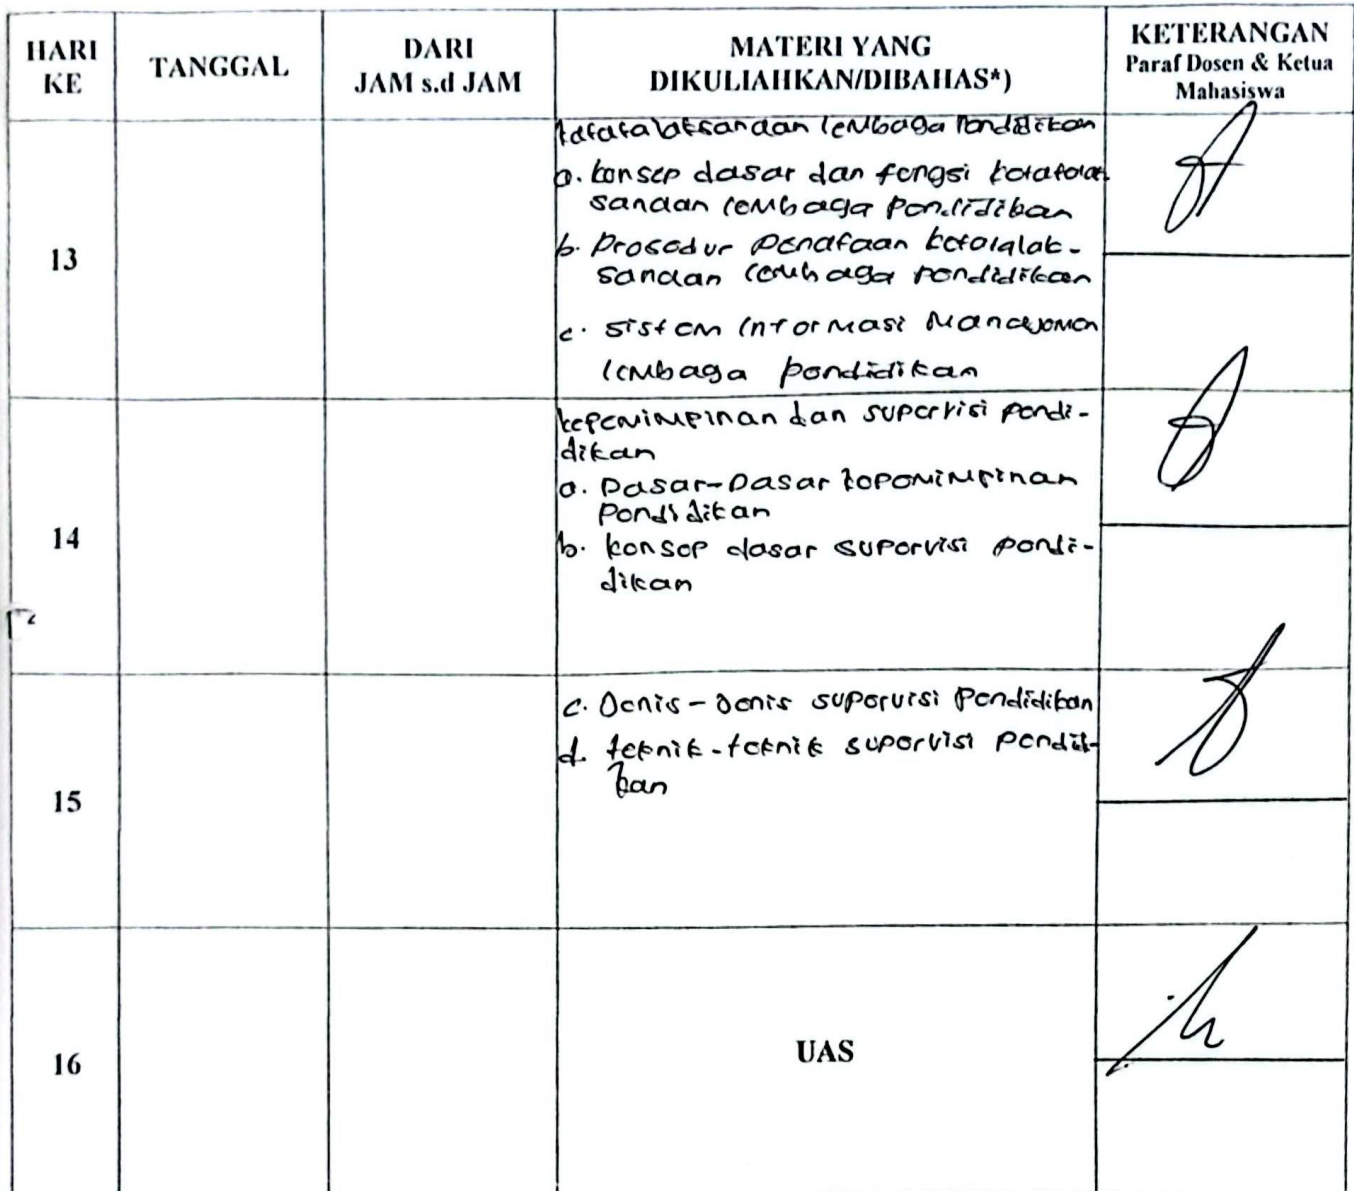 HARI
KE
TANGGAL
DARI
JAM s.d JAM
MATERI YANG
DIKULIAHKAN/DIBAHAS*)
KETERANGAN
Paraf Dosen & Ketua
Mahasiswa
13
lembaga Pendidikan
a. konsep dasar dan fungsi ketatalak
sanaan lembaga pendidikan
b. Prosedur Penataan ketatalak-
sanaan lembaga pendidikan
c. sistem informasi Manajemen
lembaga pendidikan
14
kepemimpinan dan supervisi pendi-
dikan
a. Dasar-Dasar kepemimpinan
Pendidikan
b. konsep dasar supervisi pendi-
dikan
15
c. Jenis-Jenis supervisi Pendidikan
d. teknik-teknik supervisi pendidi-
kan
16
UAS